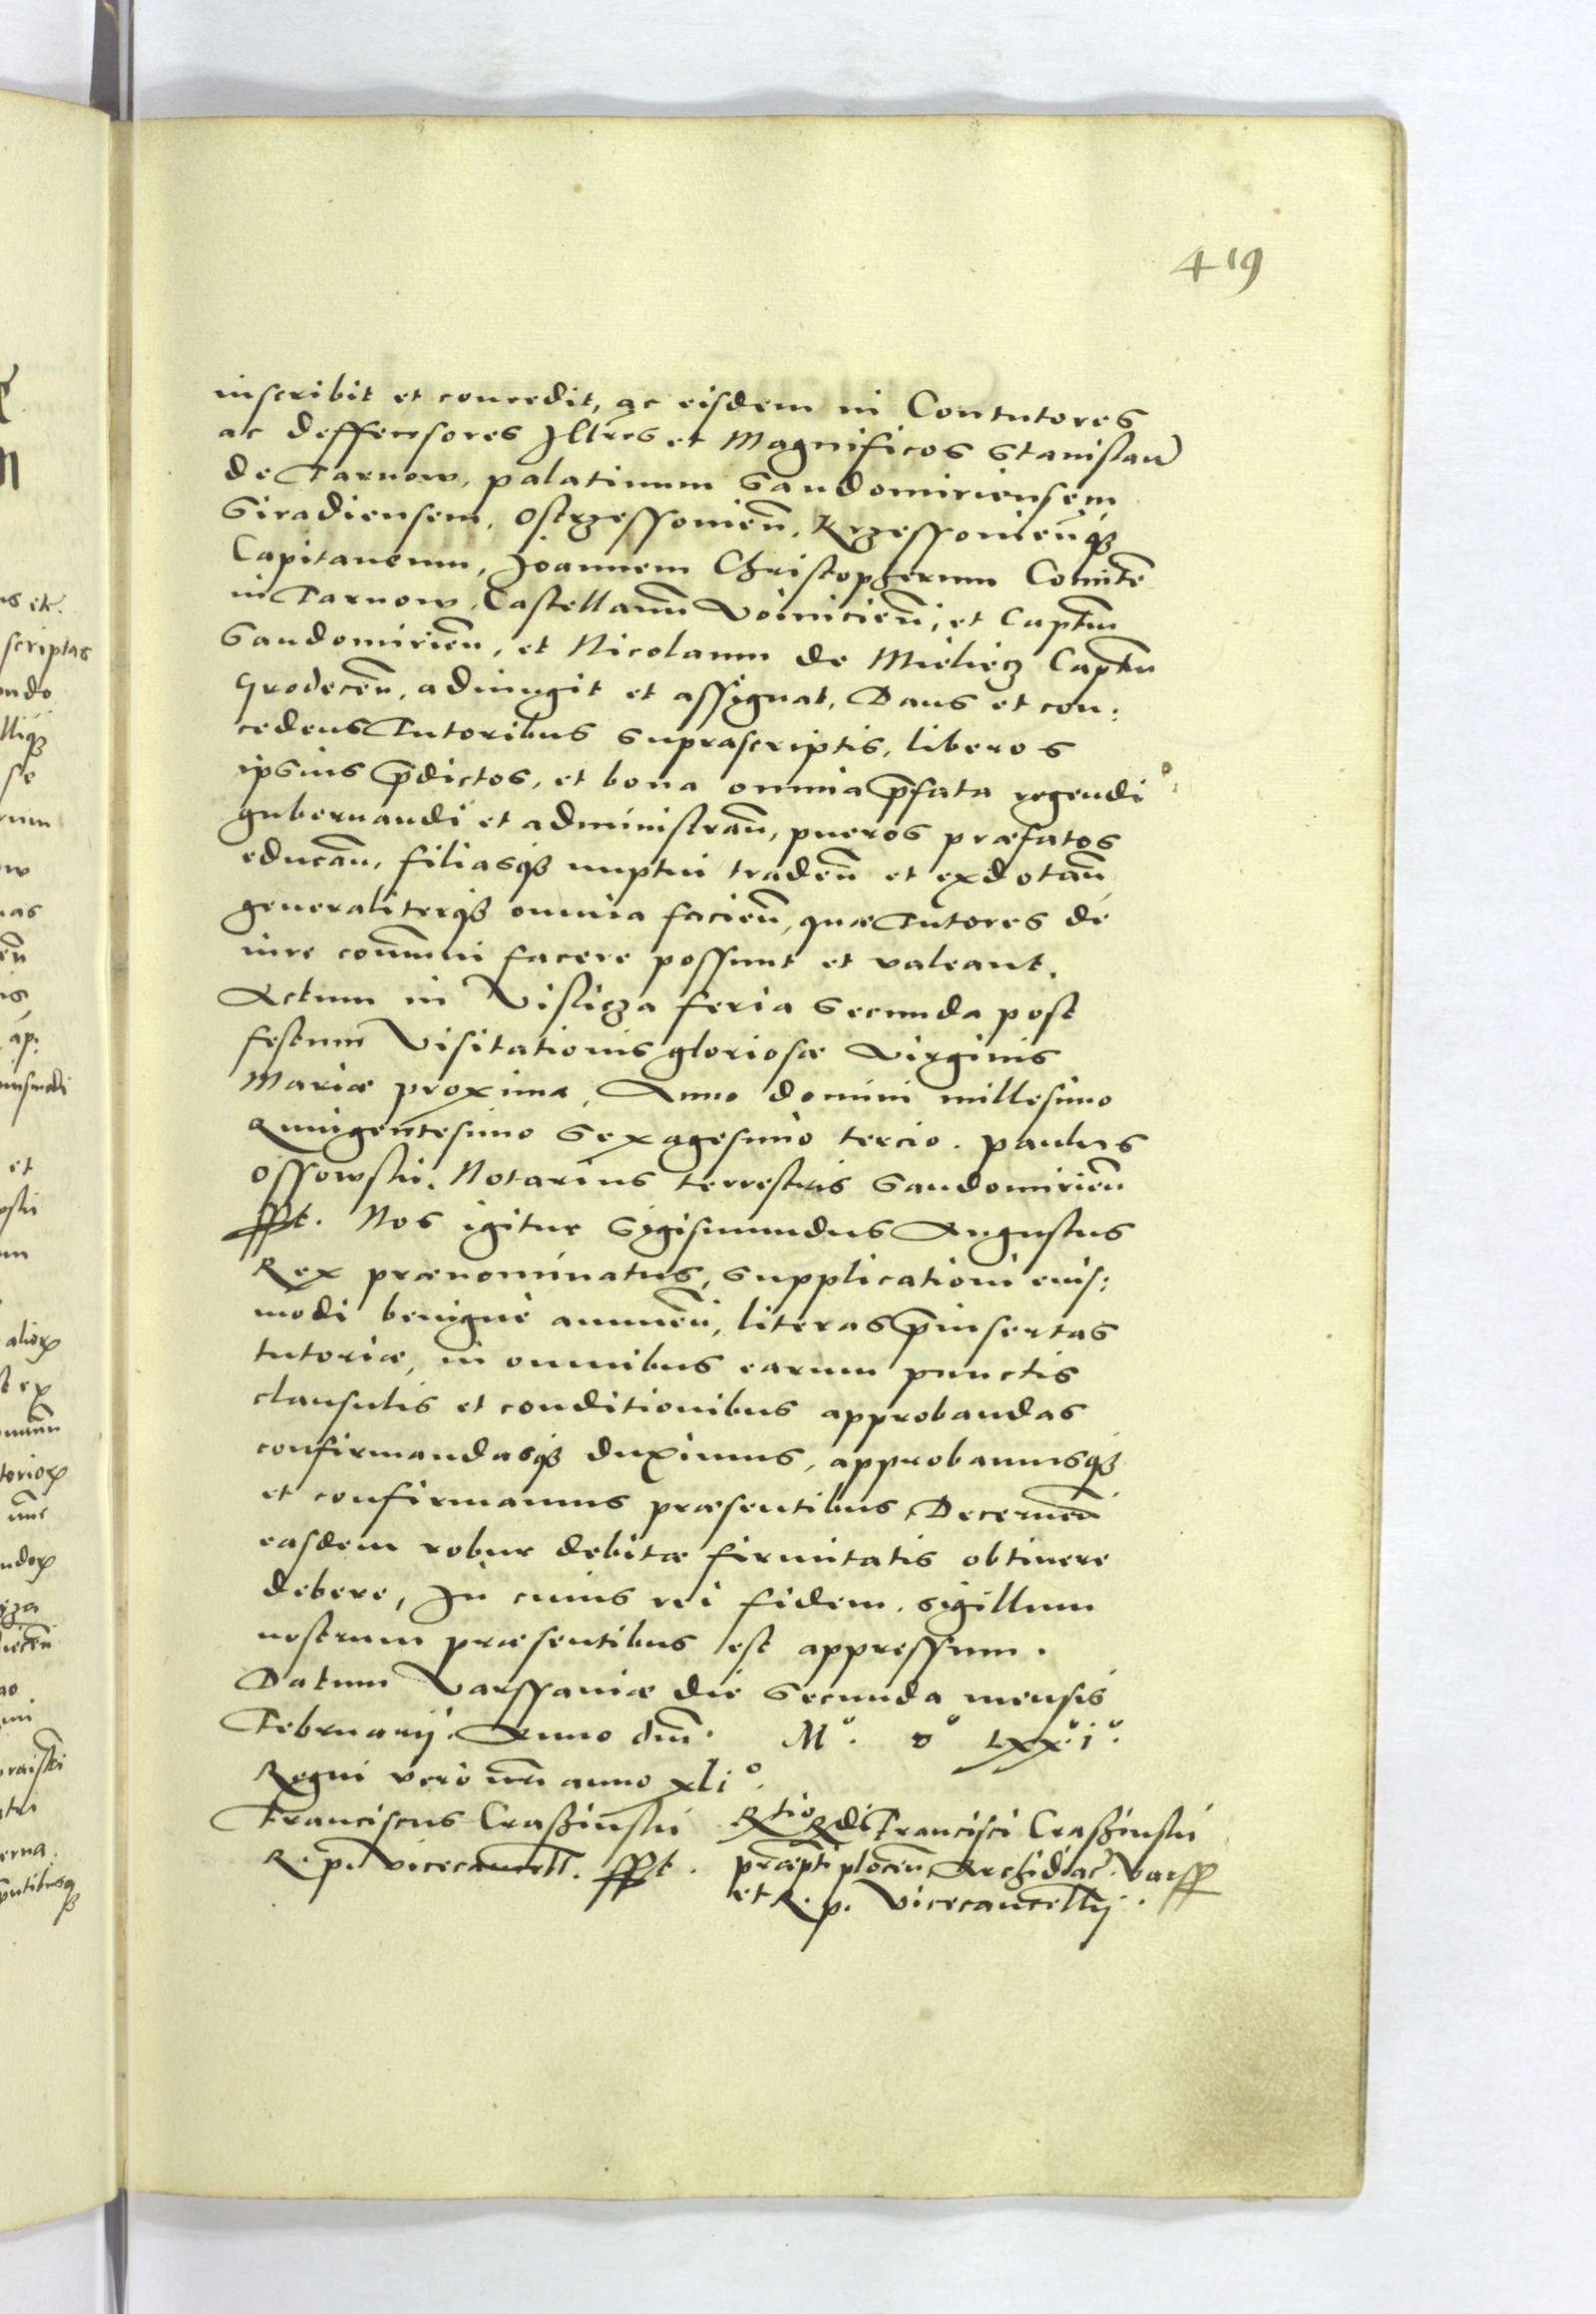 419
inscribit et concedit, ac eisdem in Contutores
ac deffensores Illres et Magnificos Stanislaū
de Tarnow, palatinum Sandomiriensem
Siradiensem, Ostrzessovieñ, Krzessovieñq₃
Capitaneum, Joannem Christopherum Comitē
in Tarnow, Castellanū Voinicieñ, et Captm̄
Sandomirieñ, et Nicolaum de Mieliecz Captm̄
Grodeceñ, adiungit et assignat, Dans et con:
cedens Tutoribus suprascriptis, liberos
ipsius p̄dictos, et bona omnia p̄fata regendi
gubernandi et administrañ, pueros præfatos
educañ, filiasq₃ nuptui tradeñ et exdotañ
generaliterq₃ omnia facieñ, quæ Tutores de
iure com̄uni facere possunt et valeant.
Actum in Vislicza feria secunda post
festum Visitationis gloriosæ Virginis
Mariæ proxima, Anno domini millesimo
Quingentesimo Sexagesimo tercio. paulus
Ossowski, Notarius terrestris Sandomirieñ
sspt. Nos igitur Sigismundus Augustus
Rex prænominatus, supplicationi eius:
modi benignè annueñ, literas p̄insertas
tutoriæ, in omnibus earum punctis
clausulis et conditionibus approbandas
confirmandasq₃ duximus, approbamusq₃
et confirmamus præsentibus, Decerneñ
easdem robur debitæ firmitatis obtinere
debere, In cuius rei fidem, sigillum
nostrum præsentibus est appressum.
Datum Varssaviæ die secunda mensis
Februarij. Anno dn̄i. Mº. Dº LXXº.iº.
Regni vero nr̄i anno xliº.
Franciscus Craszinski R. p. vicecancell. sspt.
Rtio Rdi Francisci Crasziński
præpti ploceñ, Archidiac. Varss
et R. p. Vicecancellij.